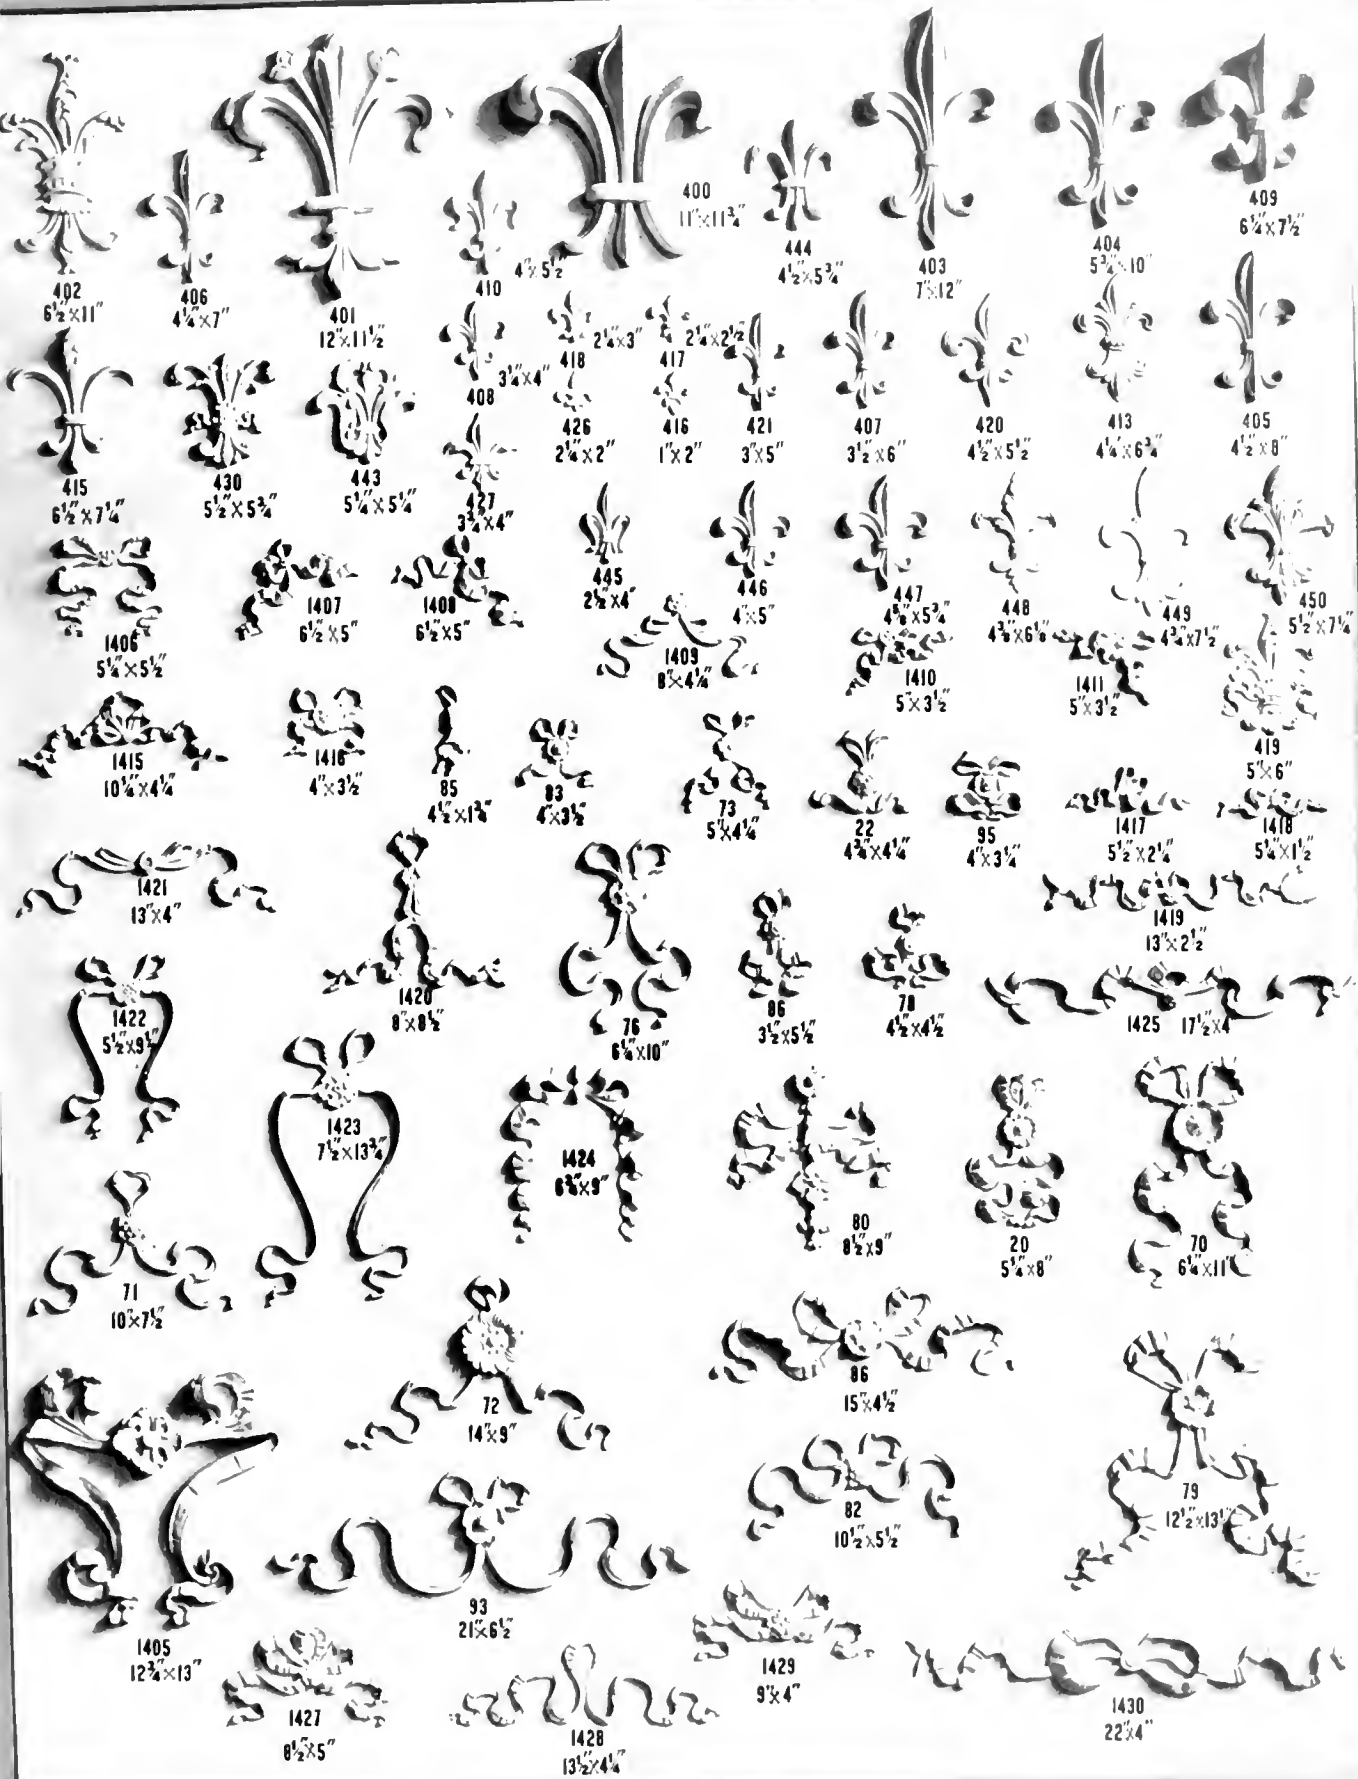 402
6½"×11"
406
4¼"×7"
401
12"×11½"
410
4"×5½"
400
11"×11¾"
444
4½"×5¾"
403
7"×12"
404
5¾"×10"
409
6¼"×7½"
415
6½"×7¼"
430
5½"×5¾"
443
5¼"×5¼"
408
3¼"×4"
418
2¼"×3"
417
2¼"×2½"
427
3¾"×4"
426
2¼"×2"
416
1"×2"
421
3"×5"
407
3½"×6"
420
4½"×5½"
413
4¼"×6¾"
405
4½"×8"
1406
5¼"×5½"
1407
6½"×5"
1408
6½"×5"
445
2½"×4"
446
4"×5"
447
4⅝"×5¾"
448
4⅜"×6⅛"
449
4¾"×7½"
450
5½"×7¼"
1409
8"×4¼"
1410
5"×3½"
1411
5"×3½"
419
5"×6"
1415
10¼"×4¼"
1416
4"×3½"
85
4½"×1¾"
83
4"×3½"
73
5"×4¼"
22
4¾"×4¼"
95
4"×3¼"
1417
5½"×2¼"
1418
5¼"×1½"
1421
13"×4"
1419
13"×2½"
1422
5½"×9½"
1420
8"×8½"
76
6¼"×10"
86
3½"×5½"
78
4½"×4½"
1425
17½"×4
1423
7½"×13¾"
1424
6¾"×9"
80
8½"×9"
20
5¼"×8"
70
6¼"×11"
71
10"×7½"
72
14"×9"
86
15"×4½"
82
10½"×5½"
79
12½"×13½"
1405
12¾"×13"
93
21"×6½"
1427
8½"×5"
1428
13½"×4¼"
1429
9"×4"
1430
22"×4"